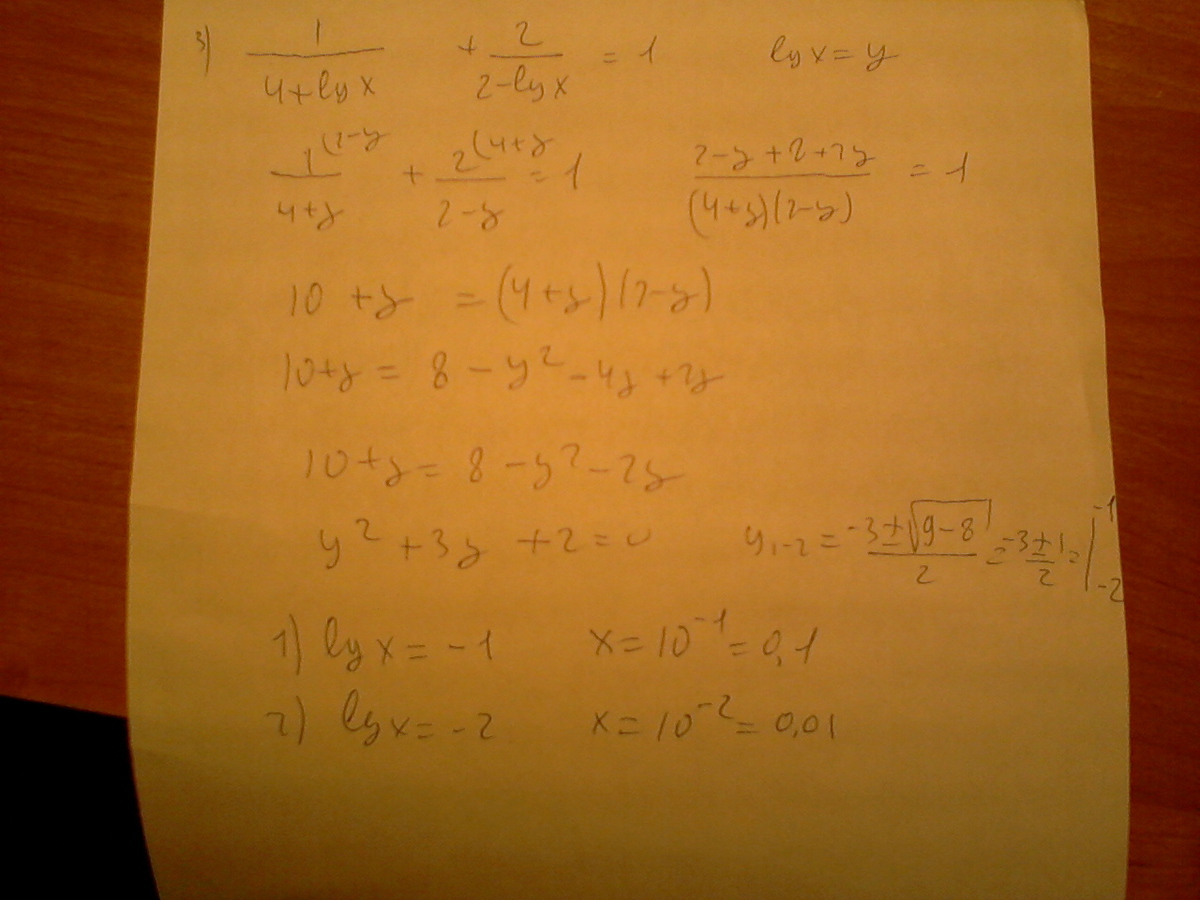 3) 1/(4+lg x) + 2/(2-lg x) = 1 lg x = y
1(2-y/(4+y) + 2(4+y/(2-y) = 1 (2-y+2+2y)/((4+y)(2-y)) = 1
10 + y = (4+y)(2-y)
10+y = 8 - y² - 4y + 2y
10+y = 8 - y² - 2y
y² + 3y + 2 = 0 y₁₋₂ = (-3±√(9-8))/2 = (-3±1)/2 = | -1 -2
1) lg x = -1 x = 10⁻¹ = 0,1
2) lg x = -2 x = 10⁻² = 0,01